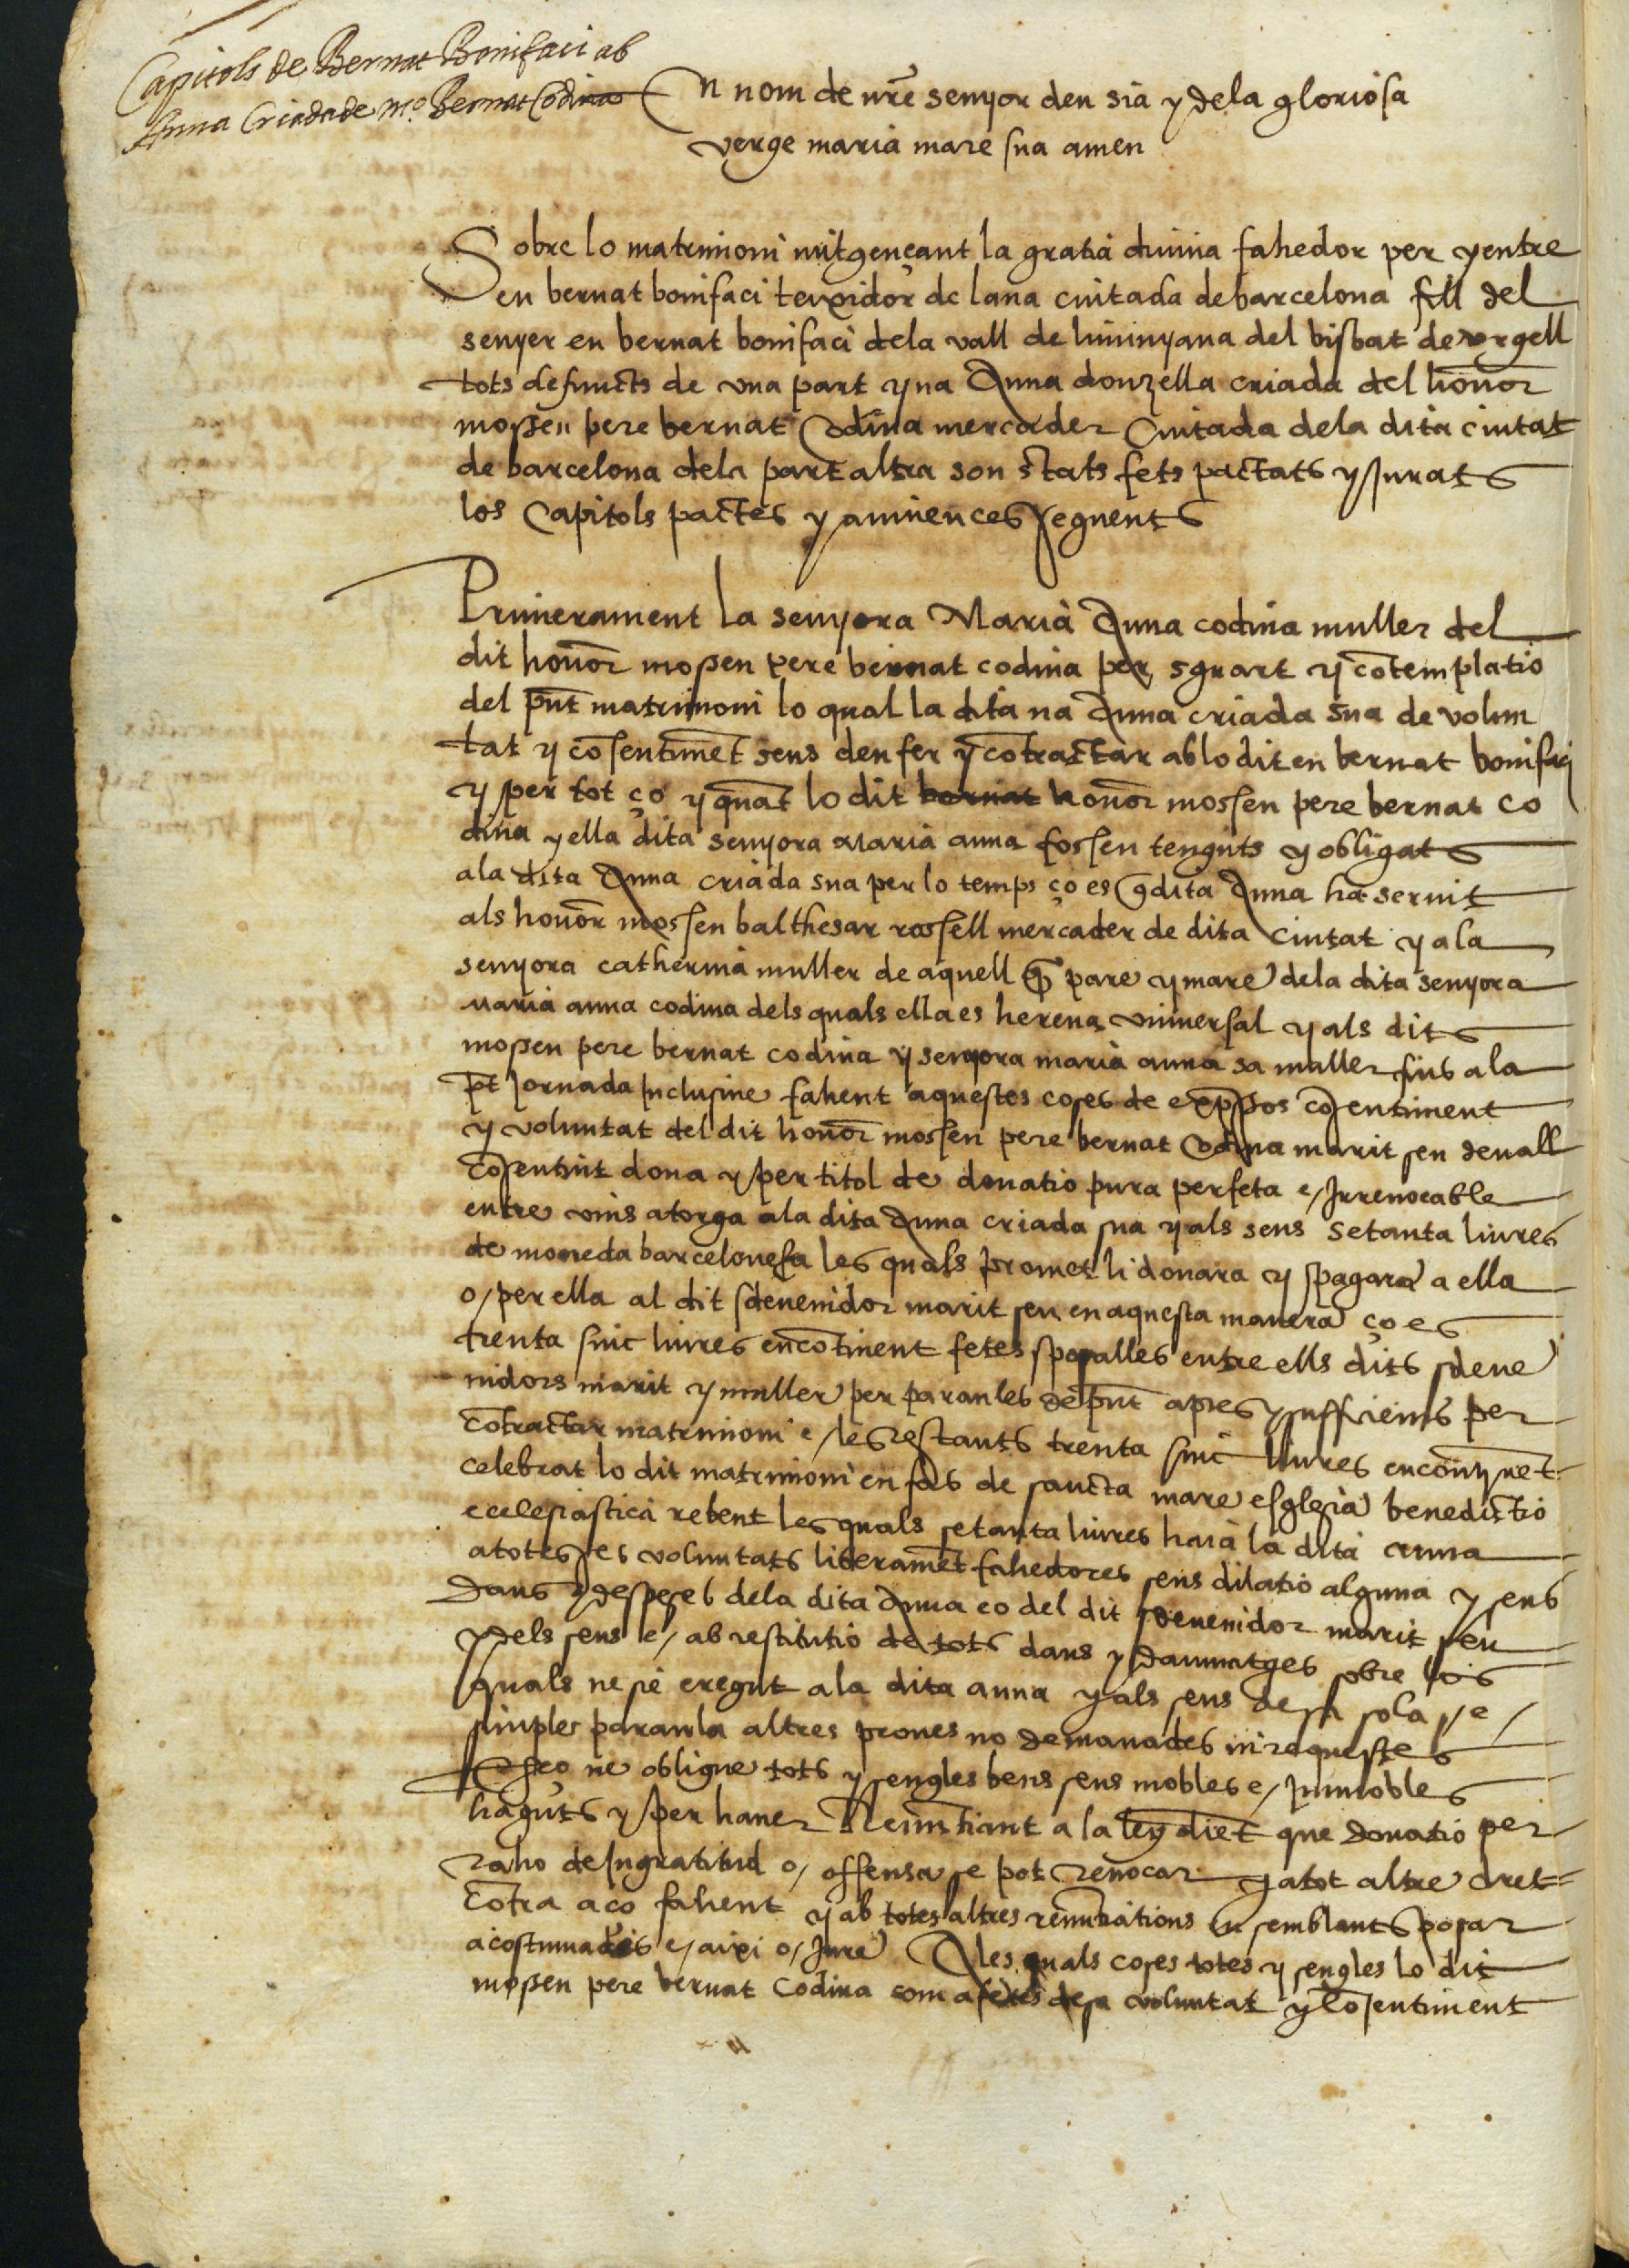 Capitols de Bernat Bonifaci ab
Anna Criada de mº. Bernat Codina
En nom de nr̃e senyor deu sia y dela gloriosa
verge maria mare sua amen
Sobre lo matrimoni mitgençant la gratia diuina fahedor per y entre
en bernat bonifaci texidor de lana ciutada de barcelona fill del
senyer en bernat bonifaci dela vall de liminyana del bisbat de vrgell
tots defuncts de vna part y na Anna donzella criada del honor̃
mossen pere bernat Codina mercader Ciutada dela dita ciutat
de barcelona dela part altra son stats fets pactats y jurats
los Capitols pactes y auinences seguents
Primerament la senyora Maria Anna codina muller del
dit honor̃ mossen pere bernat codina per sguart y cõtemplatio
del pñt matrimoni lo qual la dita na Anna criada sua de volun
tat y cõsentimẽt sens deu fer y cõtractar ab lo dit en bernat bonifaci
y per tot ço y quãt lo dit bernat honor̃ mossen pere bernat co
dina y ella dita senyora Maria anna fossen tenguts y obligats
ala dita Anna criada sua per lo temps ço es q̃ dita Anna ha seruit
als honor̃ mossen balthesar rossell mercader de dita Ciutat y ala
senyora catherina muller de aquell q̃ pare y mare dela dita senyora
maria anna codina dels quals ella es hereua vniuersal y als dits
mossen pere bernat codina y senyora maria anna sa muller fins ala
pñt Jornada Inclusiue fahent aquestes coses de exp̃ssos cõsentiment
y voluntat del dit honor̃ mossen pere bernat Codina marit seu deuall
cõsentint dona y per titol de donatio pura perfeta e / Irreuocable
entre vins atorga ala dita Anna criada sua y als seus setanta liures
de moneda barcelonesa les quals promet li donara y pagara a ella
o / per ella al dit sdeuenidor marit seu en aquesta manera ço es
trenta sinc liures encõtinent fetes sposalles entre ells dits sdeue
nidors marit y muller per paraules de pñt aptes y sufficients per
cõtractar matrimoni e / les restants trenta sinc liures encontinẽt
celebrat lo dit matrimoni en fas de sancta mare esglesia benedictio
ecclesiastica rebent les quals setanta liures haia la dita anna
a totes ses voluntats liberamẽt fahedores sens dilatio alguna y sens
dans y despeses dela dita Anna eo del dit sdeuenidor marit seu
y dels seus e / ab restitutio de tots dans y dammatges sobre los
quals ne sie cregut ala dita anna y als seus de sa sola / e /
simple paraula altres proues no demanades ni requestes
E p̃ço ne obligue tots y sengles bens seus mobles e / Immobles
haguts y per hauer Renuntiant a la ley diẽt que donatio per
raho de Ingratitud o / offensa se pot reuocar y atot altre dret
cõtra aço fahent y ab totes altres renuntiations en semblants posar
acostumades e / axi o / Jure A les quals coses totes y sengles lo dit
mossen pere bernat Codina com a fetes de sa voluntat y cõsentiment